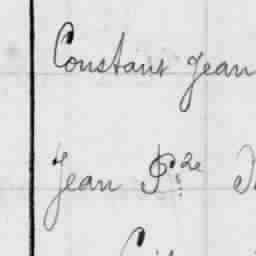 Constant Jean
Jean P.re